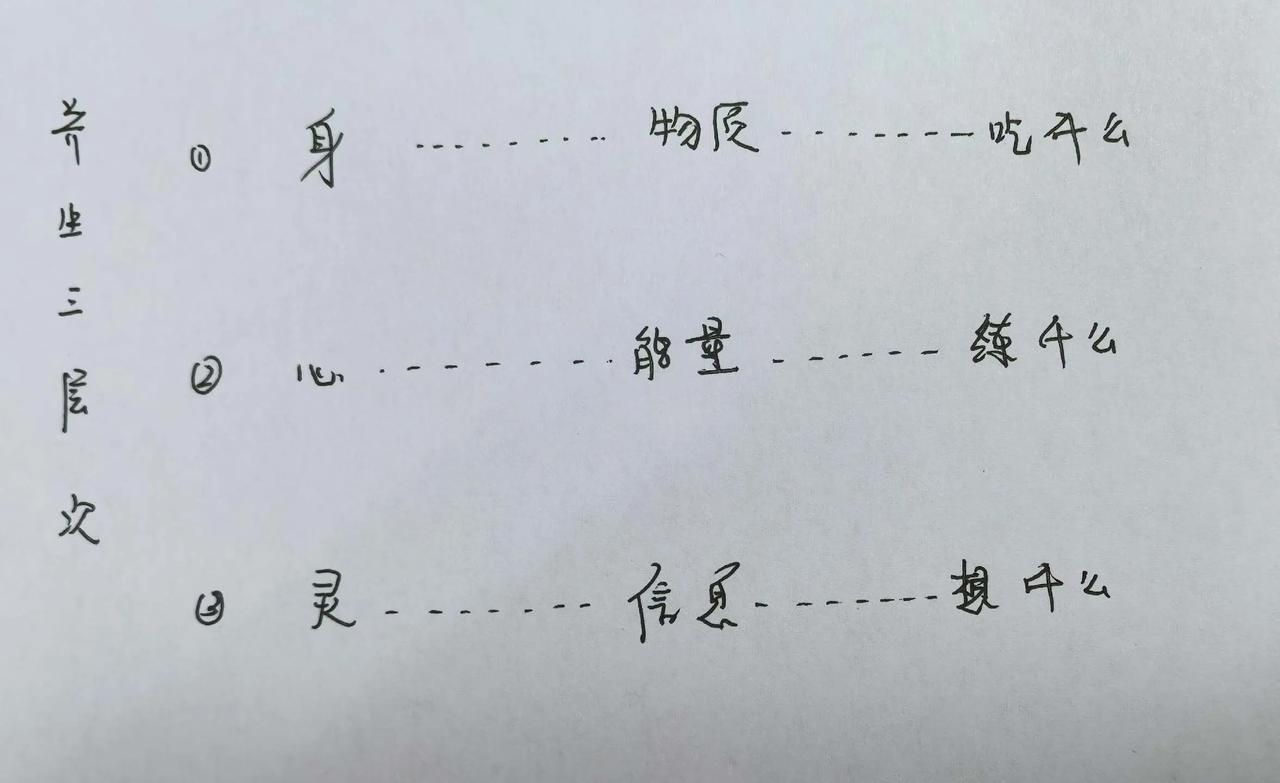 养生三层次
① 身 ········ 物质 ········ 吃什么
② 心 ········ 能量 ········ 练什么
③ 灵 ········ 信息 ········ 想什么